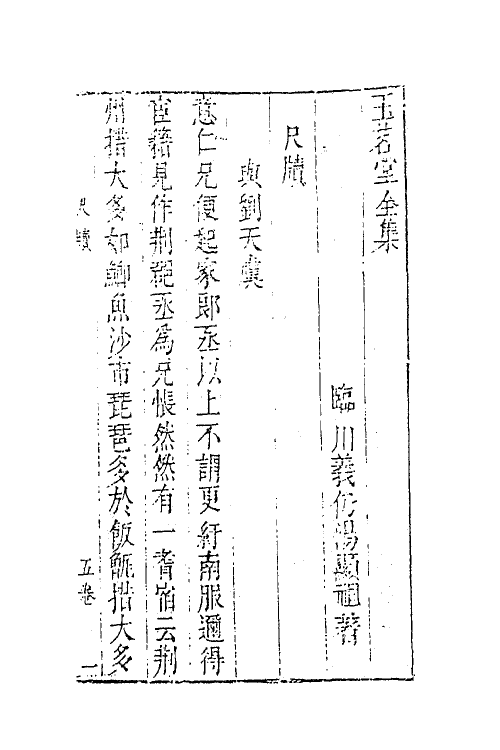 玉茗堂全集
臨川義仍湯顯祖著
尺牘
與劉天虞
意仁兄便起家郎丞以上不謂更紆南服邇得
宦籍見作荆 丞為兄悵然然有一耆宿云荆
州措大多如鯽魚沙市琵琶多於飯甑措大多
尺牘 五卷 一